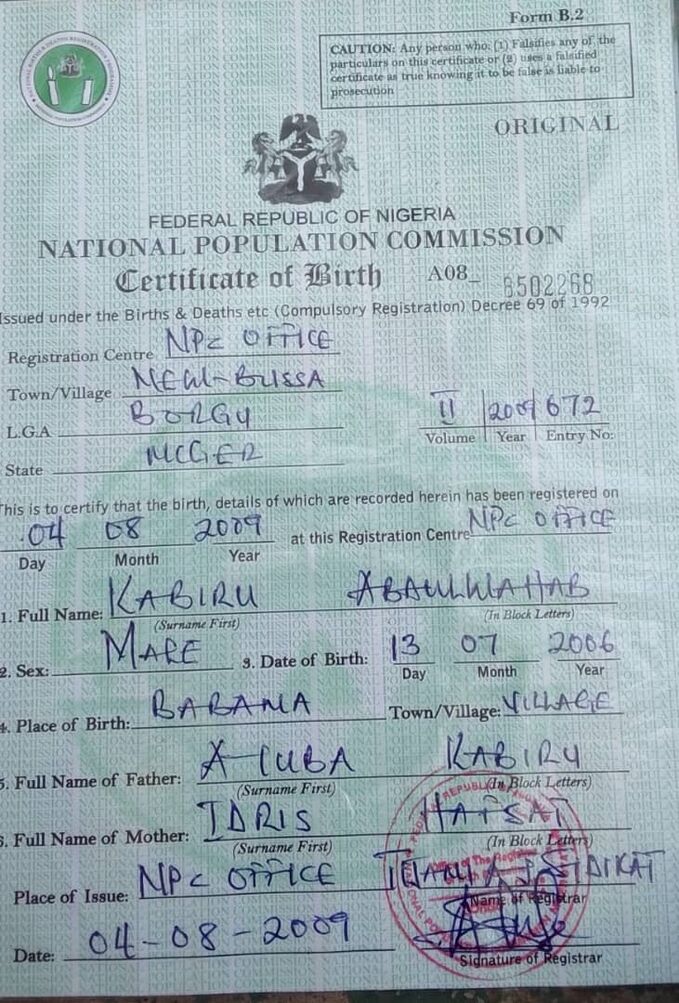 Form B.2
CAUTION: Any person who: (1) Falsifies any of the
particulars on this certificate or (2) uses a falsified
certificate as true knowing it to be false is liable to
prosecution
ORIGINAL
FEDERAL REPUBLIC OF NIGERIA
NATIONAL POPULATION COMMISSION
Certificate of Birth A08_ 8502268
Issued under the Births & Deaths etc (Compulsory Registration) Decree 69 of 1992
Registration Centre NPC OFFICE
Town/Village NEW-BUSSA
L.G.A BORGU
II 2009 672
Volume Year Entry No:
State NIGER
This is to certify that the birth, details of which are recorded herein has been registered on
04 08 2009 at this Registration Centre NPC OFFICE
Day Month Year
1. Full Name: KABIRU ABAULWAHAB
(Surname First) (In Block Letters)
2. Sex: MALE 3. Date of Birth: 13 07 2006
Day Month Year
4. Place of Birth: BABANA Town/Village: VILLAGE
5. Full Name of Father: KABIRU
(Surname First) (In Block Letters)
6. Full Name of Mother: IDRIS HAFSAT
(Surname First) (In Block Letters)
Place of Issue: NPC OFFICE
Name of Registrar
Date: 04-08-2009
Signature of Registrar